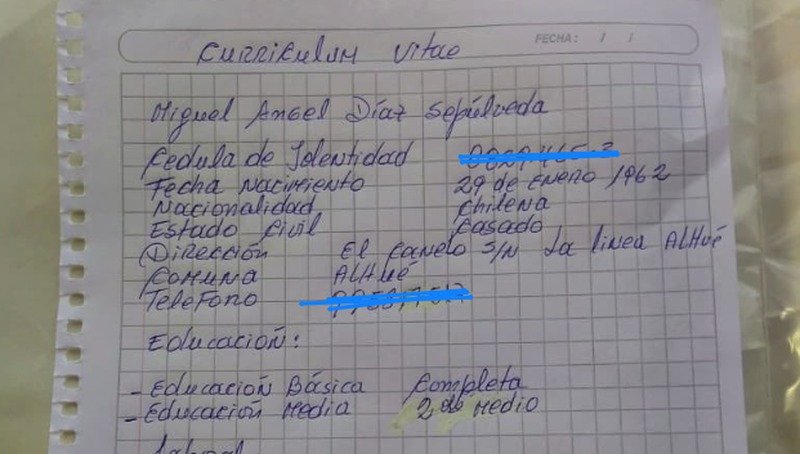 FECHA: / /
Curriculum Vitae
Miguel Angel Díaz Sepúlveda
Cedula de Identidad
Fecha Nacimiento 29 de Enero 1962
Nacionalidad Chilena
Estado Civil Casado
Dirección El Canelo S/N La Linea ALHué
Comuna ALHué
Telefono
Educación:
- Educación Básica Completa
- Educación Media 2do Medio
Laboral